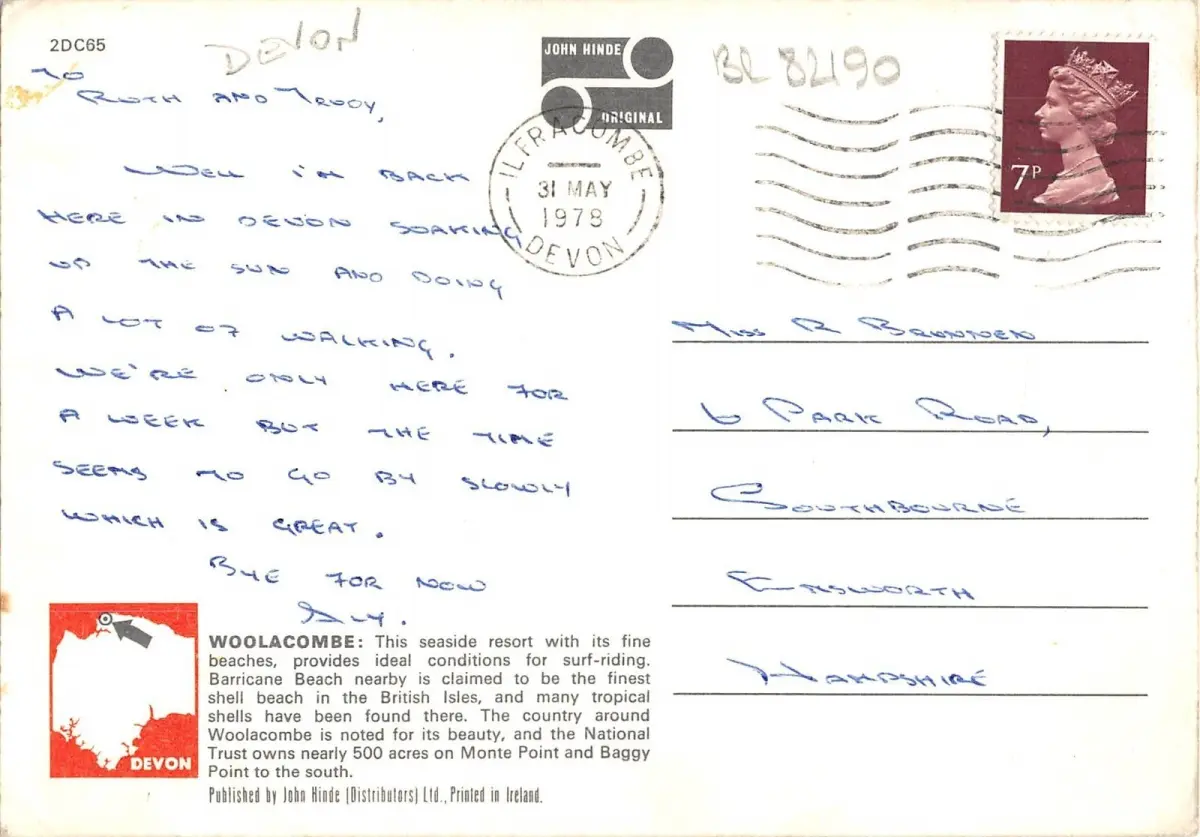 2DC65
DEVON
JOHN HINDE
ORIGINAL
BR 82190
7P
ILFRACOMBE
31 MAY
1978
DEVON
TO
RUTH AND TRUDY,
WELL I'M BACK
HERE IN DEVON SOAKING
UP THE SUN AND DOING
A LOT OF WALKING.
WE'RE ONLY HERE FOR
A WEEK BUT THE TIME
SEEMS TO GO BY SLOWLY
WHICH IS GREAT.
BYE FOR NOW
MISS R BRUNNEN
6 PARK ROAD,
SOUTHBOURNE
EMSWORTH
HAMPSHIRE
DEVON
WOOLACOMBE: This seaside resort with its fine
beaches, provides ideal conditions for surf-riding.
Barricane Beach nearby is claimed to be the finest
shell beach in the British Isles, and many tropical
shells have been found there. The country around
Woolacombe is noted for its beauty, and the National
Trust owns nearly 500 acres on Monte Point and Baggy
Point to the south.
Published by John Hinde (Distributors) Ltd., Printed in Ireland.